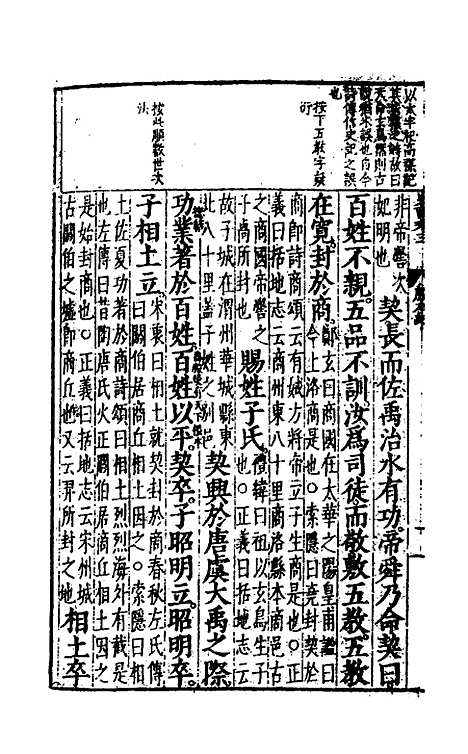 以太牢祀高禖記
其祈福之時故曰
天命玄鳥降則古
說猶未誤也自今
詩傳信史記之誤
也
按下五教字疑
衍
按此順敘世次
法
非帝嚳次
妃明也
契長而佐禹治水有功帝舜乃命契曰
百姓不親五品不訓汝爲司徒而敬敷五教五教
在寛封於商
鄭玄曰商國在太華之陽皇甫謐曰
今上洛商是也○索隱曰堯封契於
商即詩商頌云有娀方將帝立子生商是也○正
義曰括地志云商州東八十里商洛縣本商邑古
之商國帝嚳之
子卨所封也
賜姓子氏
禮緯曰祖以玄鳥生子
也○正義曰括地志云
故子城在渭州華城縣東
北八十里蓋子姓之別邑
契興於唐虞大禹之際
功業著於百姓百姓以平契卒子昭明立昭明卒
子相土立
宋衷曰相土就契封於商春秋左氏傳
曰閼伯居商丘相土因之○索隱曰相
土佐夏功著於商詩頌曰相土烈烈海外有截是
也左傳曰昔陶唐氏火正閼伯居商丘相土因之
是始封商也○正義曰括地志云宋州城
古閼伯之墟即商丘也又云羿所封之地
相土卒